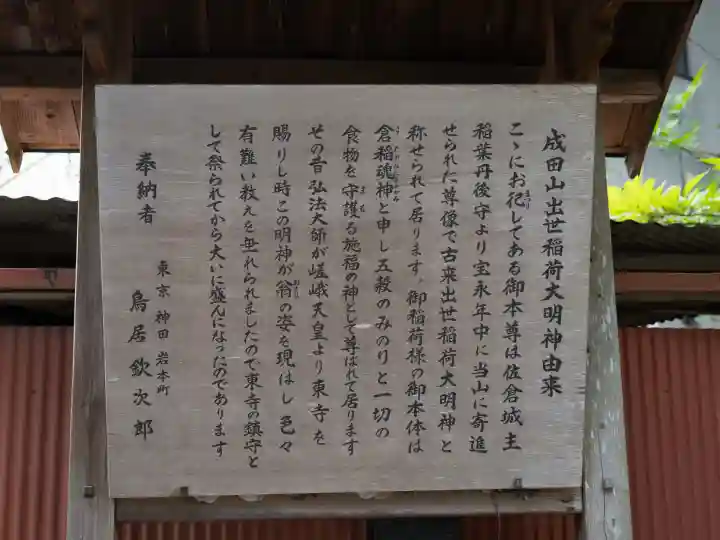 成田山出世稲荷大明神由来
こゝにお祀してある御本尊は佐倉城主
稲葉丹後守より宝永年中に当山に寄進
せられた尊像で古来出世稲荷大明神と
称せられて居ります。御稲荷様の御本体は
倉稲魂神と申し五穀のみのりと一切の
食物を守護る施福の神として尊ばれて居ります
その昔弘法大師が嵯峨天皇より東寺を
賜りし時この明神が翁の姿を現はし色々
有難い教えを垂れられましたので東寺の鎮守と
して祭られてから大いに盛んになったのであります
奉納者
東京神田岩本町
鳥居欽次郎